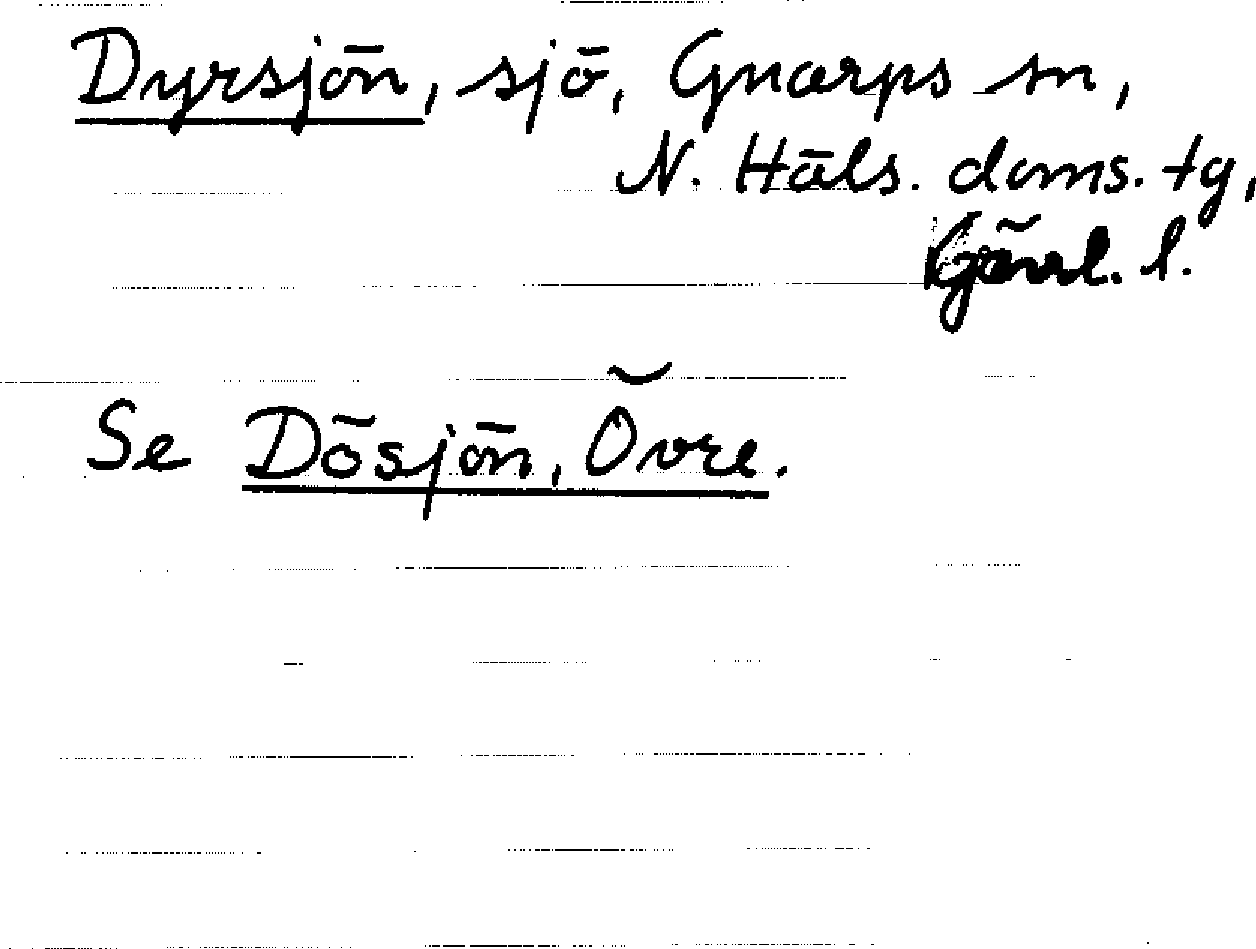 Dyrsjön, sjö, Gnarps sn,
N. Häls. doms. tg,
Gävl. l.
Se Dösjön, Övre.